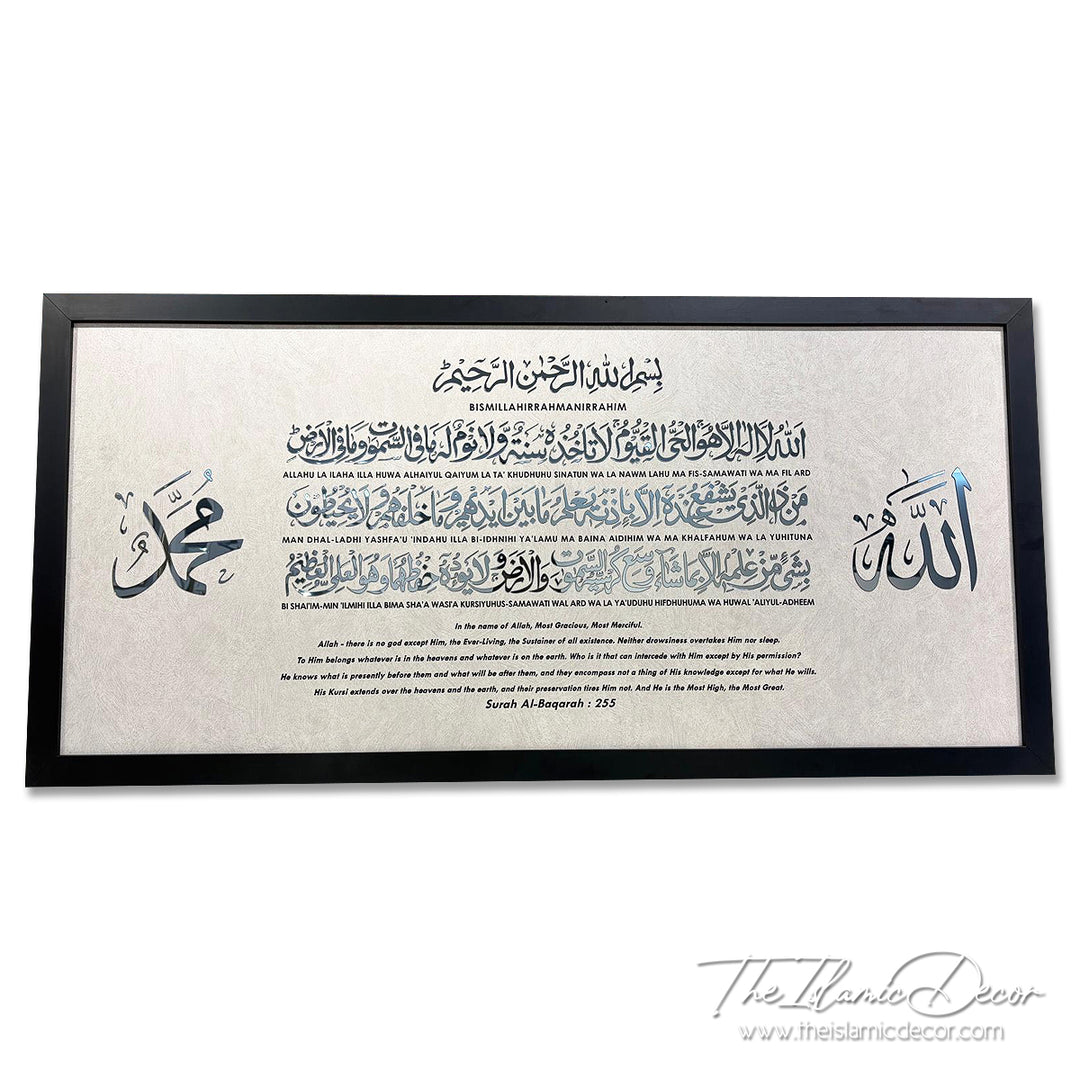 بِسْمِ اللهِ الرَّحْمٰنِ الرَّحِيْمِ
BISMILLAHIRRAHMANIRRAHIM
اَللهُ لَا اِلٰهَ اِلَّا هُوَ الْحَىُّ الْقَيُّوْمُ لَا تَاْخُذُهٗ سِنَةٌ وَّلَا نَوْمٌ لَهٗ مَا فِى السَّمٰوٰتِ وَمَا فِى الْاَرْضِ
ALLAHU LA ILAHA ILLA HUWA ALHAIYUL QAIYUM LA TA' KHUDHUHU SINATUN WA LA NAWM LAHU MA FIS-SAMAWATI WA MA FIL ARD
مَنْ ذَا الَّذِىْ يَشْفَعُ عِنْدَهٗ اِلَّا بِاِذْنِهٖ يَعْلَمُ مَا بَيْنَ اَيْدِيْهِمْ وَمَا خَلْفَهُمْ وَلَا يُحِيْطُوْنَ
MAN DHAL-LADHI YASHFA'U 'INDAHU ILLA BI-IDHNIHI YA'LAMU MA BAINA AIDIHIM WA MA KHALFAHUM WA LA YUHITUNA
بِشَىْءٍ مِّنْ عِلْمِهٖ اِلَّا بِمَا شَآءَ وَسِعَ كُرْسِيُّهُ السَّمٰوٰتِ وَالْاَرْضَ وَلَا يَـُٔوْدُهٗ حِفْظُهُمَا وَهُوَ الْعَلِىُّ الْعَظِيْمُ
BI SHAI'IM-MIN 'ILMIHI ILLA BIMA SHA'A WASI'A KURSIYUHUS-SAMAWATI WAL ARD WA LA YA'UDUHU HIFDHUHUMA WA HUWAL 'ALIYUL-ADHEEM
اللّٰه
مُحَمَّد
In the name of Allah, Most Gracious, Most Merciful.
Allah - there is no god except Him, the Ever-Living, the Sustainer of all existence. Neither drowsiness overtakes Him nor sleep.
To Him belongs whatever is in the heavens and whatever is on the earth. Who is it that can intercede with Him except by His permission?
He knows what is presently before them and what will be after them, and they encompass not a thing of His knowledge except for what He wills.
His Kursi extends over the heavens and the earth, and their preservation tires Him not. And He is the Most High, the Most Great.
Surah Al-Baqarah : 255
The Islamic Decor
www.theislamicdecor.com